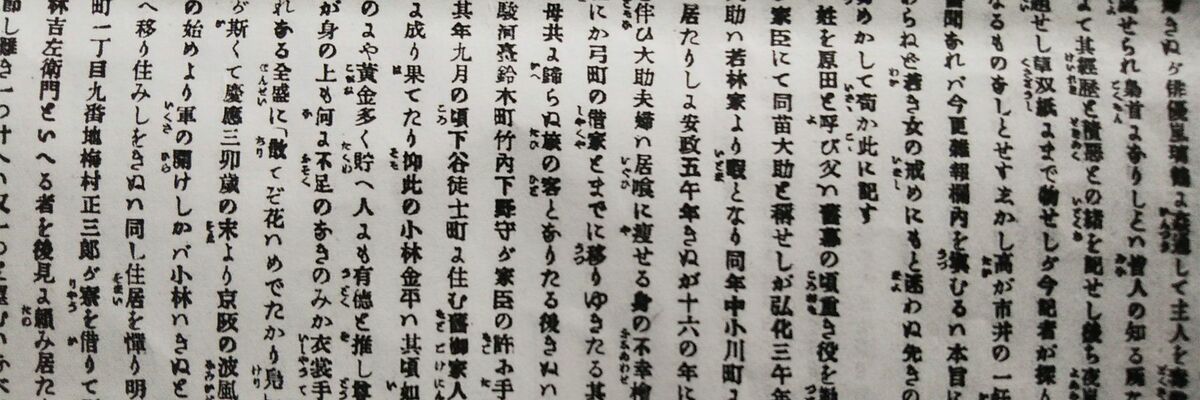 きぬが俳優嵐璃鶴と姦通して主人を毒
せられ梟首となりしとハ皆人の知る所な
て其經歴と懺悪との緒を記せし後ち夜嵐
せし草双紙まで物せしが今記者が探り
なるものなしとせずしかし高が市井の一奸
聞なれバ今更雜報欄内を填むるハ本旨に
わらねど若き女の戒めにもと迷わぬ先きの
めかして茍か此に記す
姓を原田と呼び父ハ舊幕の頃重き役を勤
家臣にて同苗大助と稱せしが弘化三午年
助ハ若林家より暇となり同年中小川町よ
居たりしよ安政五午年きぬが十六の年に
伴ひ大助夫婦ハ居喰に痩せる身の不幸
にか弓町の借家とまでに移りゆきたる其
母共よ歸らぬ旅の客となりたる後きぬハ
駿河臺鈴木町竹内下野守が家臣の許に手
其年九月の頃下谷徒士町よ住む舊御家人
よ成り果てたり抑此の小林金平ハ其頃如
のよや黄金多く貯へ人よも有德と推し尊
が身の上も何よ不足のなきのみか衣裳手
れある全盛に「散てぞ花ハめでたかり鳧
が斯くて慶應三卯歳の末より京阪の波風
の始めより軍の開けしかバ小林ハきぬと
へ移り住みしをきぬハ同し住居を憚り明
町一丁目九番地梅村正三郎が寮を借りて
林吉左衛門といへる者を後見よ頼み居た